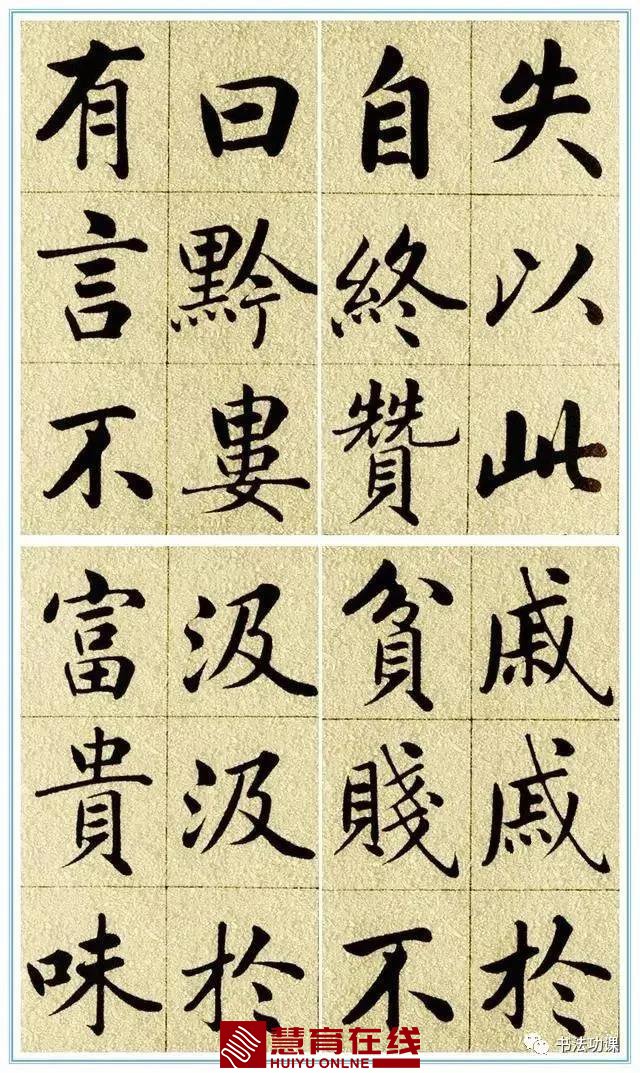 失以此
自終贊
曰黔婁
有言不
戚戚於
貧賤不
汲汲於
富貴味
慧育在线
HUIYU ONLINE
书法功课